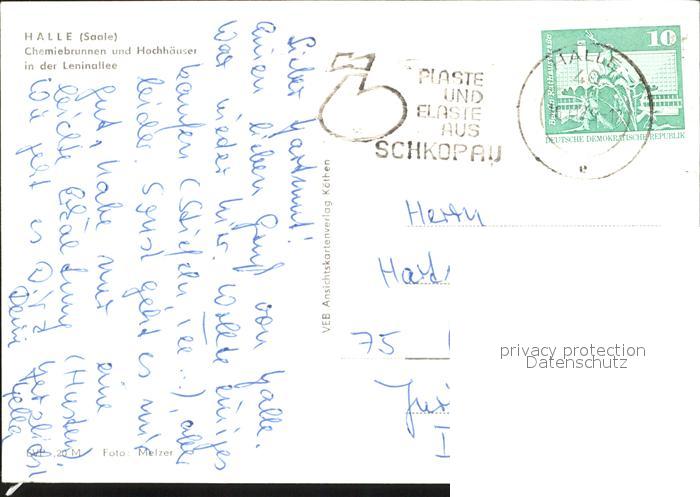 HALLE (Saale)
Chemiebrunnen und Hochhäuser
in der Leninallee
Lieber Hartmut!
Einen lieben Gruß von Halle.
War wieder hier. Wollte einiges
kaufen (Stiefeln ...), aber
leider. Sonst geht es mir
gut, habe nur eine
leichte Erkältung (Husten)
Wie geht es Dir?
Herzlichst
Deine
VEB Ansichtskartenverlag Köthen
PLASTE
UND
ELASTE
AUS
SCHKOPAU
HALLE
40
e
10
Berlin, Rathausstraße
DEUTSCHE DEMOKRATISCHE REPUBLIK
Herrn
75
privacy protection
Datenschutz
20 M Foto: Melzer